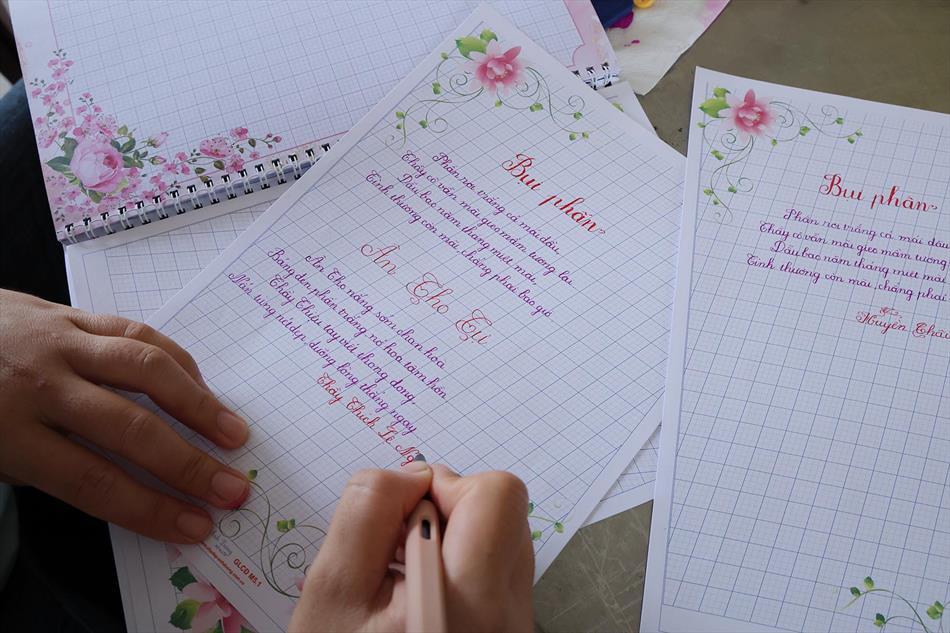 Bụi phấn
Phấn rơi trắng cả mái đầu,
Thầy cô vẫn mãi gieo mầm tương lai
Dẫu bao năm tháng miệt mài,
Tình thương còn mãi, chẳng phai bao giờ
Ân Thơ Tự
Ân Thơ nắng sớm chan hòa
Bảng đen phấn trắng nở hoa tâm hồn
Thầy Thiều tay viết thong dong
Nắn từng nét đẹp, dưỡng lòng thẳng ngay
Thầy Thích Lê Ng
GLCD M5.1
Bụi phấn
Phấn rơi trắng cả mái đầu
Thầy cô vẫn mãi gieo mầm tương
Dẫu bao năm tháng miệt mài,
Tình thương còn mãi, chẳng phai
Huyền Châu